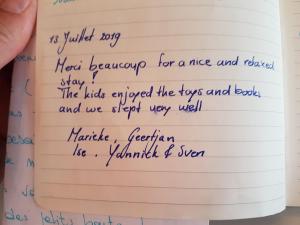 13 Juillet 2019
Merci beaucoup for a nice and relaxed
stay!
The kids enjoyed the toys and books
and we slept very well
Marieke, Geertjan
Ise, Yannick & Sven
des petits